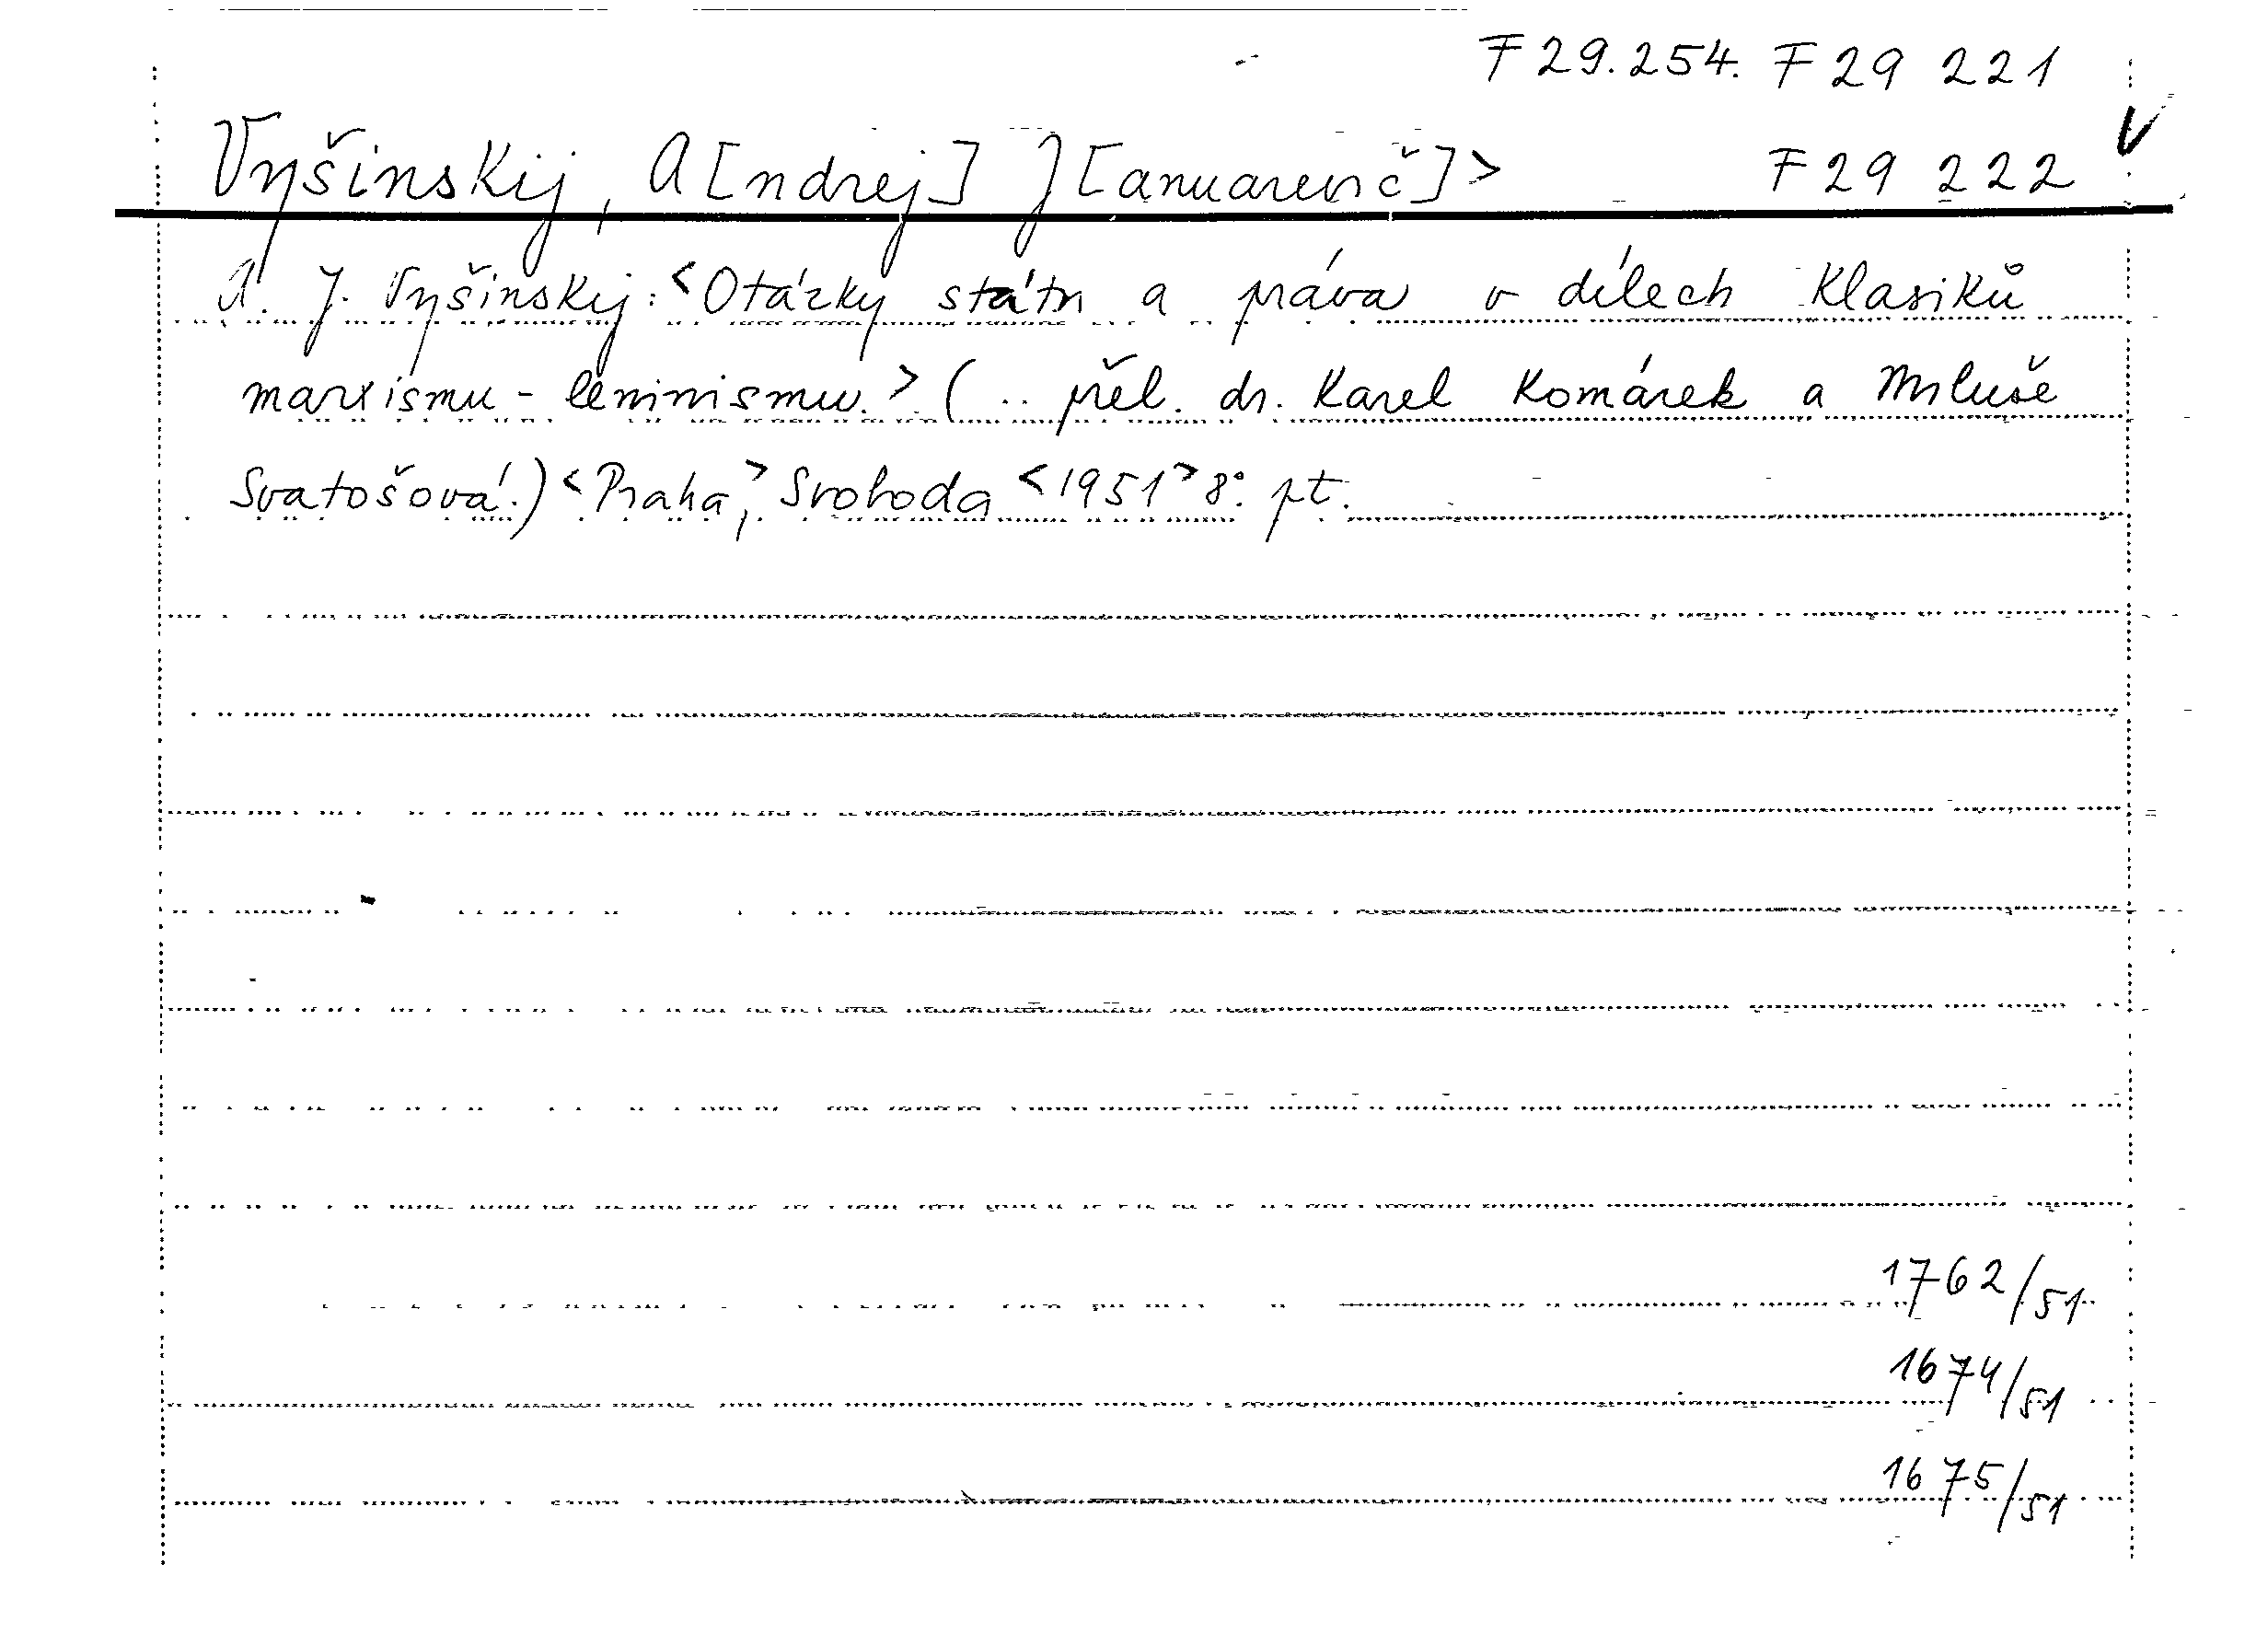 F 29.254. F 29 221
Vyšinskij, A[ndrej] J[anuarevič]> F 29 222 V
A. J. Vyšinskij: <Otázky státu a práva v dílech klasiků
marxismu - leninismu.> (.. přel. dr. Karel Komárek a Miluše
Svatošová.) <Praha,> Svoboda <1951> 8°. pt.
1762/51
1674/51
1675/51